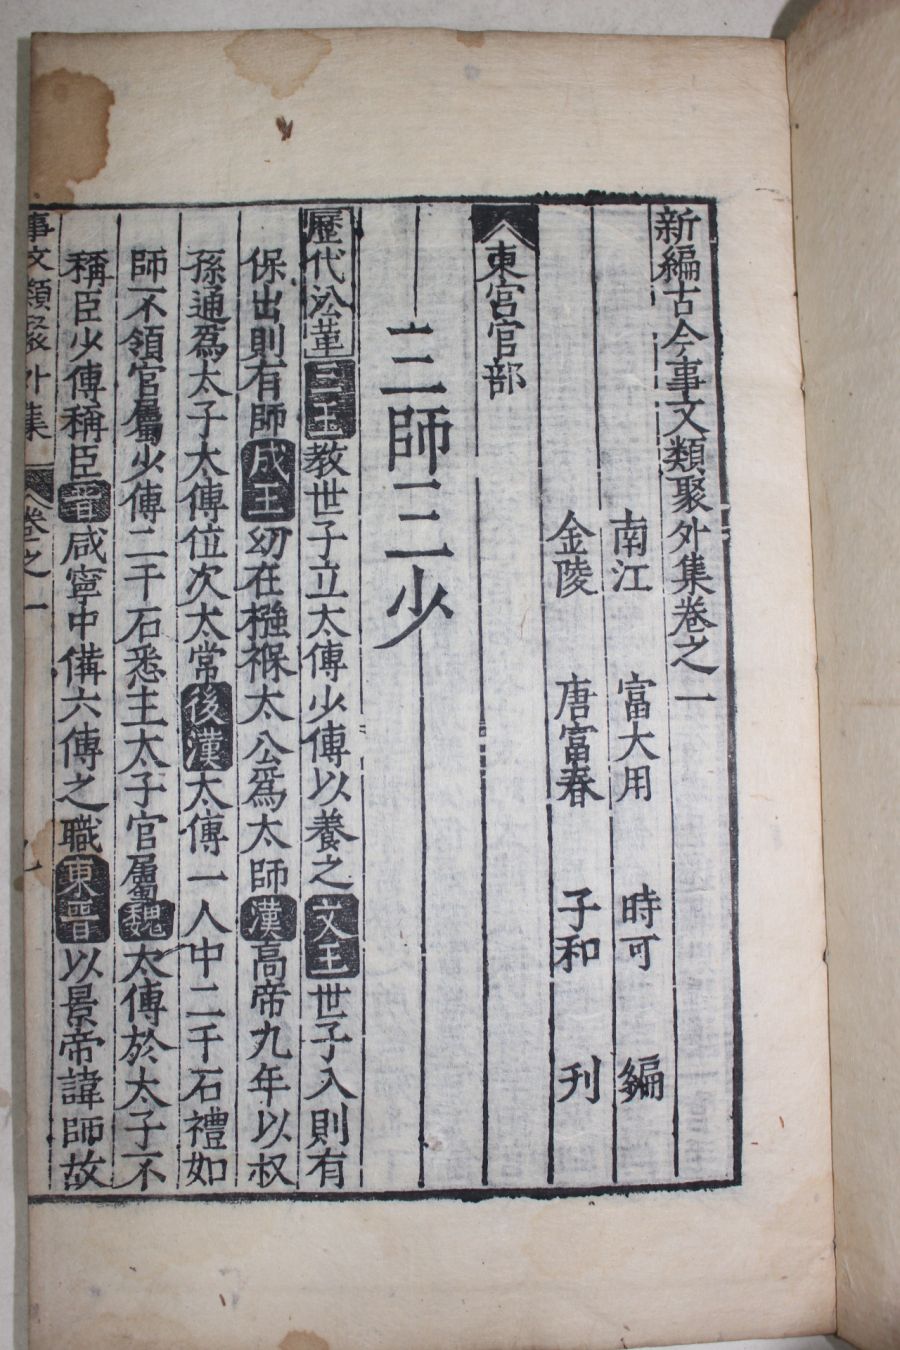 新編古今事文類聚外集卷之一
南江 富大用 時可 編
金陵 唐富春 子和 刊
東宮官部
三師三少
歷代㳂革三王教世子立太傅少傅以養之文王世子入則有
保出則有師成王幼在襁褓太公爲太師漢高帝九年以叔
孫通爲太子太傅位次太常後漢太傅一人中二千石禮如
師不領官屬少傅二千石悉主太子官屬魏太傅於太子不
稱臣少傅稱臣晉咸寧中備六傅之職東晉以景帝諱師故
事文類聚外集 卷之一